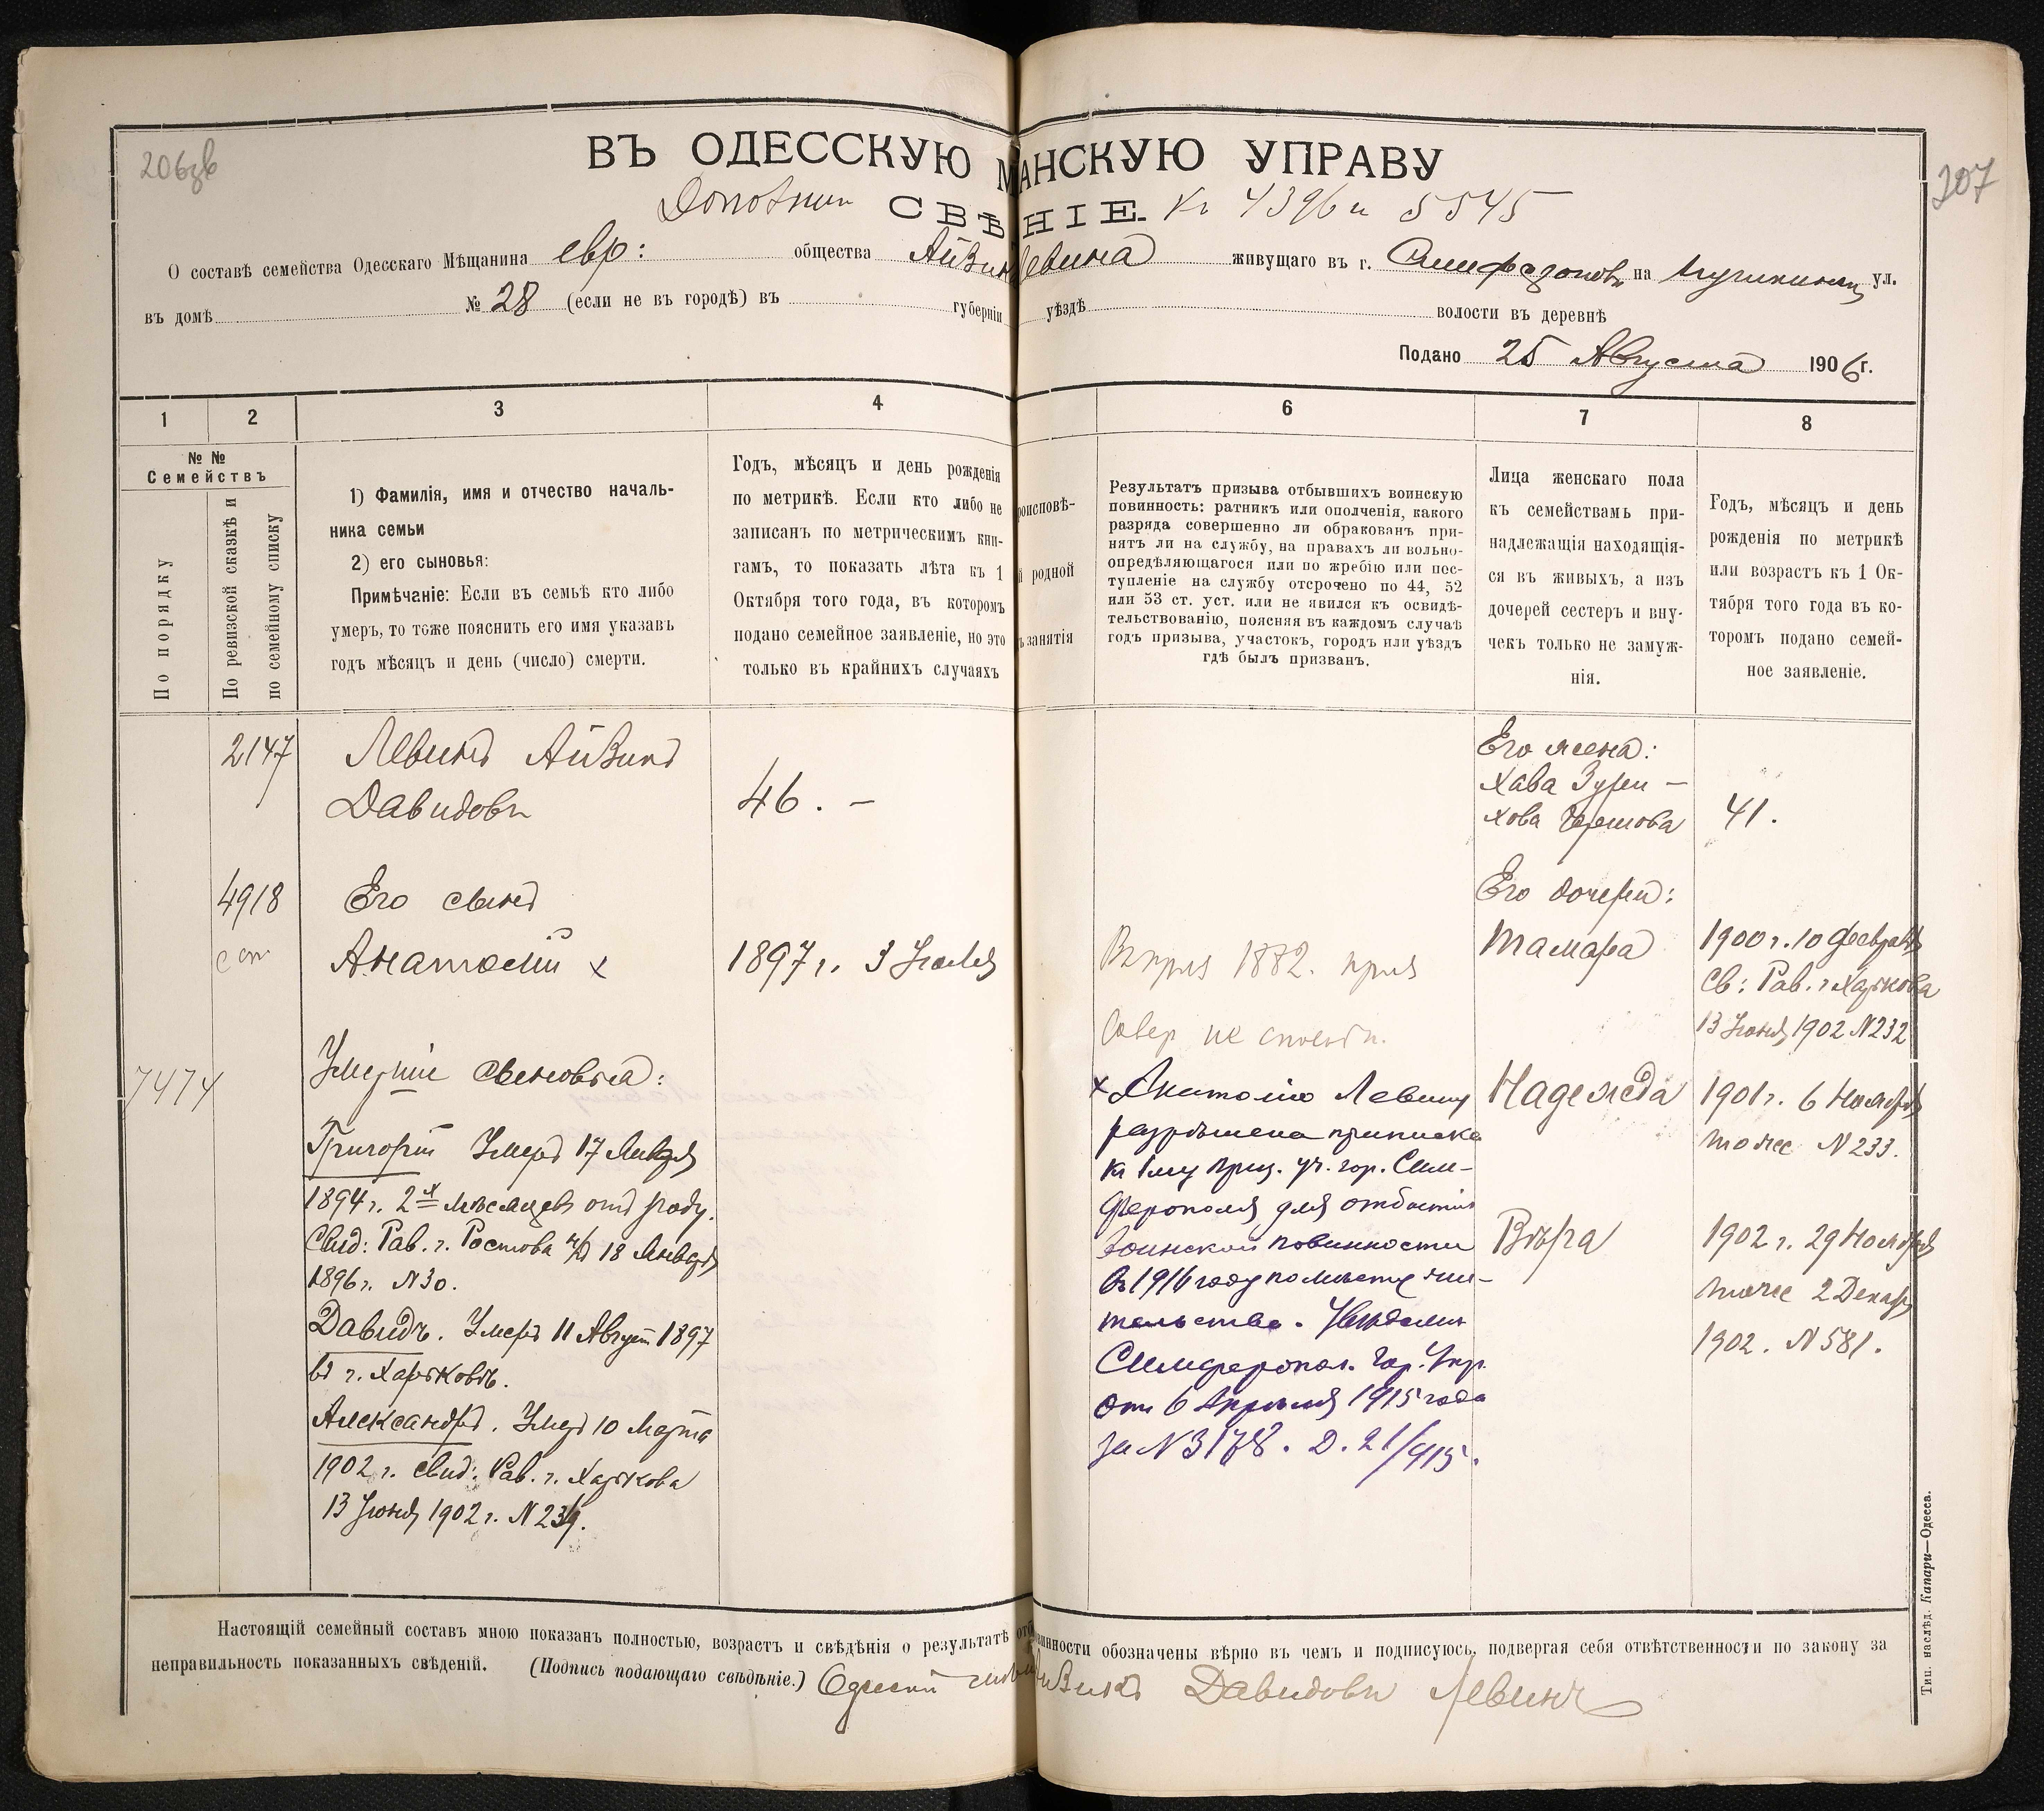 206зв
207
ВЪ ОДЕССКУЮ МАНСКУЮ УПРАВУ
СВѢНІЕ. Къ 4396 и 5545
О составѣ семейства Одесскаго Мѣщанина евр: общества Айзик Левина живущаго въ г. Симферополь на Пушкинск ул.
въ домѣ № 28 (если не въ городѣ) въ губерніи уѣздѣ волости въ деревнѣ
Подано 25 Августа 1906 г.
1 2 3 4 6 7 8
№ №
Семействъ
По порядку
По ревизской сказкѣ и
по семейному списку
1) Фамилія, имя и отчество началь-
ника семьи
2) его сыновья:
Примѣчаніе: Если въ семьѣ кто либо
умеръ, то тоже пояснить его имя указавъ
годъ мѣсяцъ и день (число) смерти.
Годъ, мѣсяцъ и день рожденія
по метрикѣ. Если кто либо не
записанъ по метрическимъ кни-
гамъ, то показать лѣта къ 1
Октября того года, въ которомъ
подано семейное заявленіе, но это
только въ крайнихъ случаяхъ
роисповѣ-
й родной
ъ занятія
Результатъ призыва отбывшихъ воинскую
повинность: ратникъ или ополченія, какого
разряда совершенно ли обракованъ при-
нятъ ли на службу, на правахъ ли вольно-
опредѣляющагося или по жребію или пос-
тупленіе на службу отсрочено по 44, 52
или 53 ст. уст. или не явился къ освидѣ-
тельствованію, поясняя въ каждомъ случаѣ
годъ призыва, участокъ, городъ или уѣздъ
гдѣ былъ призванъ.
Лица женскаго пола
къ семействамъ при-
надлежащія находящія-
ся въ живыхъ, а изъ
дочерей сестеръ и вну-
чекъ только не замуж-
нія.
Годъ, мѣсяцъ и день
рожденія по метрикѣ
или возрастъ къ 1 Ок-
тября того года въ ко-
торомъ подано семей-
ное заявленіе.
2147
Левинъ Айзикъ
Давидовъ
46. –
4918
Его сынъ
Анатолій x
1897 г. 3 Іюля
7474
Умершіе сыновья:
Григорій Умеръ 17 Январ
1894 г. 2х мѣсяцевъ отъ роду.
Свид: Рав. г. Ростова н/Д 18 Январ
1896 г. N 30.
Давидъ. Умеръ 11 Август 1897
въ г. Харьковѣ.
Александръ. Умер 10 Марта
1902 г. Свид: Рав. г. Харькова
13 Іюня 1902 г. N 234.
1882.
x Анатолію Левину
разрѣшена приписка
къ 1му приз. уч. гор. Сим-
ферополя для отбытія
воинской повинности
въ 1916 году по мѣсту жи-
тельства. Увѣдомл
Симферопол. Гор. Упр.
отъ 6 Апрѣля 1915 года
за N 3178. Д. 21/915.
Его жена:
Хава
41.
Его дочери:
Тамара
1900 г. 10 Февраля
Св: Рав. г. Харькова
13 Іюня 1902 N 232
Надежда
1901 г. 6 Ноября
тоже N 233.
Вѣра
1902 г. 29 Ноября
тоже 2 Декабр
1902. N 581.
Настоящій семейный составъ мною показанъ полностью, возрастъ и свѣдѣнія о результатѣ отб винности обозначены вѣрно въ чемъ и подписуюсь, подвергая себя отвѣтственности по закону за
неправильность показанныхъ свѣденій. (Подпись подающаго свѣдѣніе.) Одесскій Айзикъ Давидовъ Левинъ
Тип. наслѣд. Капари—Одесса.